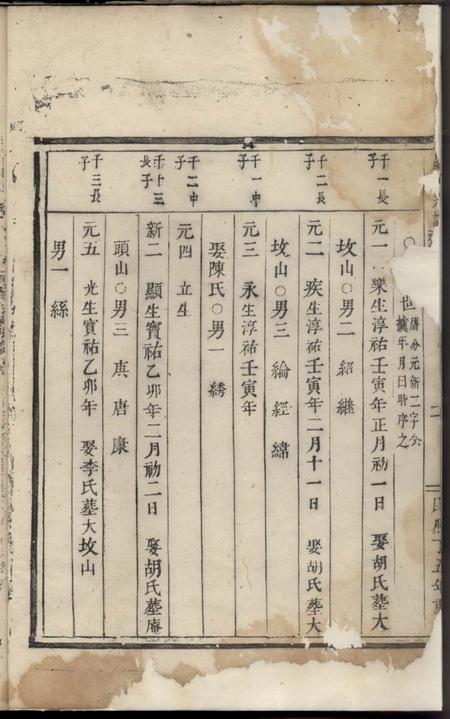 ○
世
曆分元新二字分
據年月日時序之
千一長
子
元一
樂生淳祐壬寅年正月初一日
娶胡氏墓大
坟山○男二
紹
継
千二長
子
元二
疾生淳祐壬寅年二月十一日
娶胡氏墓大
坟山○男三
綸
經
緯
千一中
子
元三
永生淳祐壬寅年
娶陳氏○男一
綉
千二中
子
元四
立生
千十三
長子
新二
顯生寳祐乙卯年二月初二日
娶胡氏墓庵
頭山○男三
唐
康
千三長
子
元五
光生寳祐乙卯年
娶李氏墓大坟山
男一
二